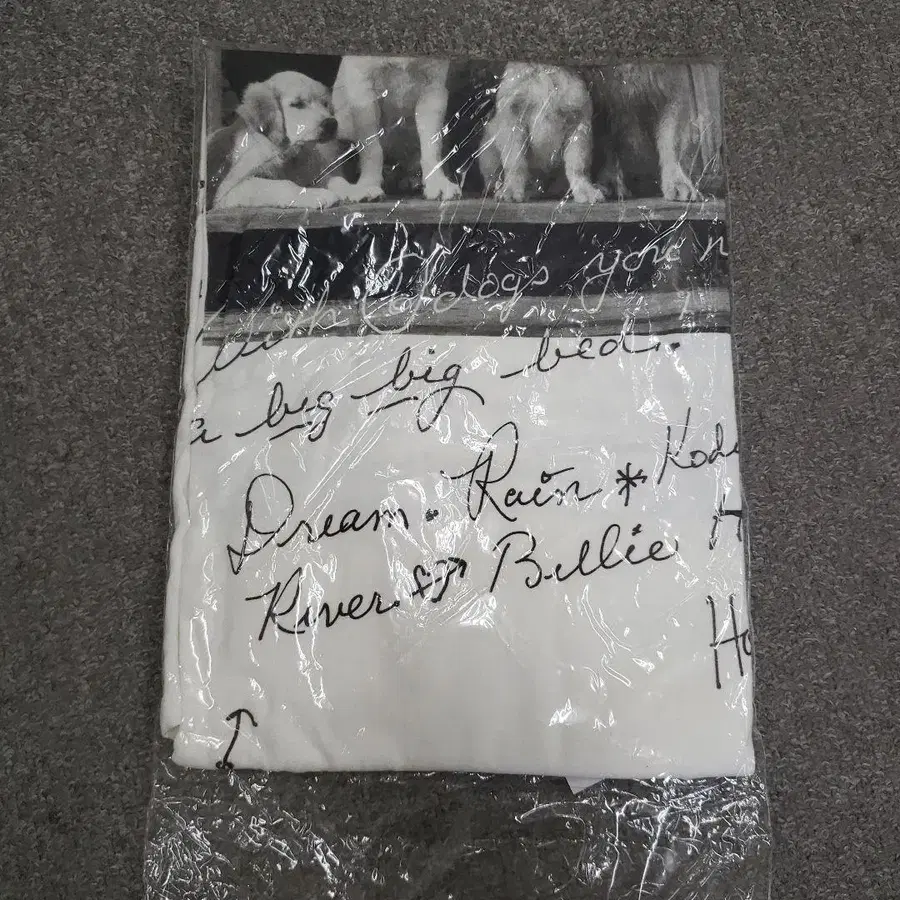 Wish of dogs you n
a big big bed..
Dream. Rain * Kod
River Billie H
H